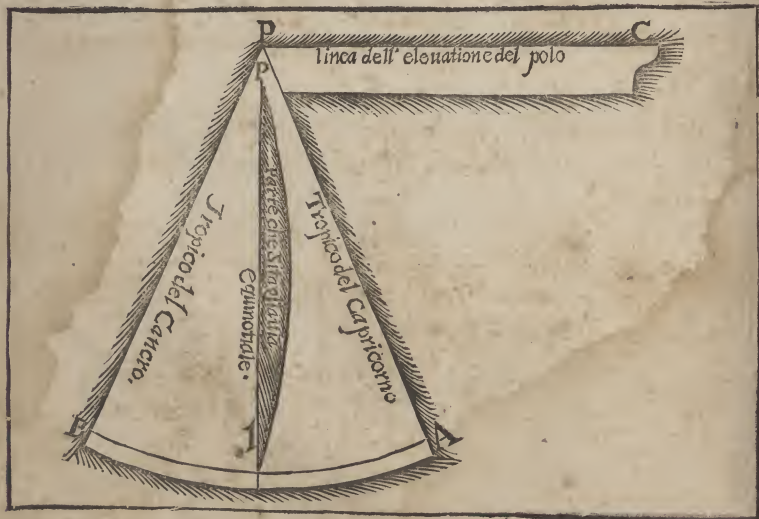 P C
linea dell' eleuatione del polo
P
Tropico del Cancro.
equinotiale.
Parte che Si taglia uia
Tropico del Capricorno
B 1 A